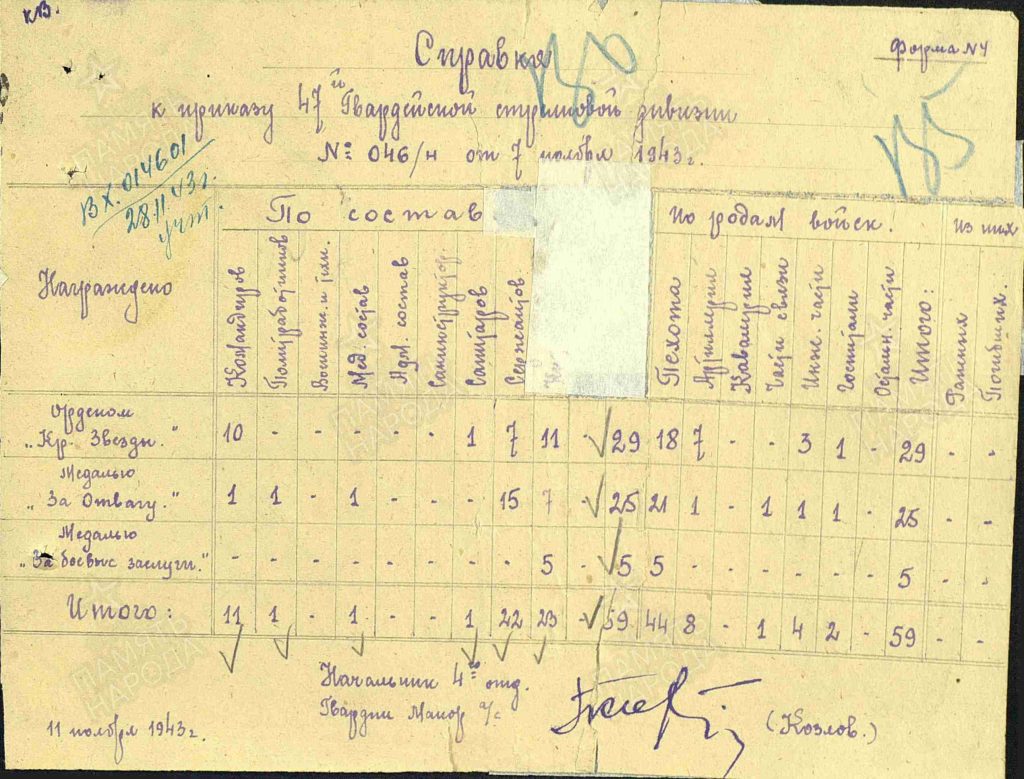 кв.
Справка
Форма N4
к приказу 47й Гвардейской стрелковой дивизии
№ 046/н от 7 ноября 1943г.
ВХ. 014601
28.11.43г.
учт.
Награждено По состав По родам войск. Из них
Командиров Политработников Военинж. и Мед. состав Адм. состав Санинструкторов Санитаров Сержантов Пехота Артиллерии Кавалерии Части связи Инж. части Госпитали Остальн. части Итого: Раненых Погибших.
Орденом
„Кр. Звезды." 10 - - - - - 1 7 11 - 29 18 7 - - 3 1 - 29 - -
Медалью
„За Отвагу." 1 1 - 1 - - 15 7 - 25 21 1 - 1 1 1 - 25 - -
Медалью
„За боевые заслуги." - - - - - - - - 5 - 5 5 - - - - - - 5 - -
Итого: 11 1 - 1 - - 1 22 23 - 59 44 8 - 1 4 2 - 59 - -
Начальник 4го отд.
Гвардии Майор а/с
(Козлов.)
11 ноября 1943г.
ПАМЯТЬ НАРОДА